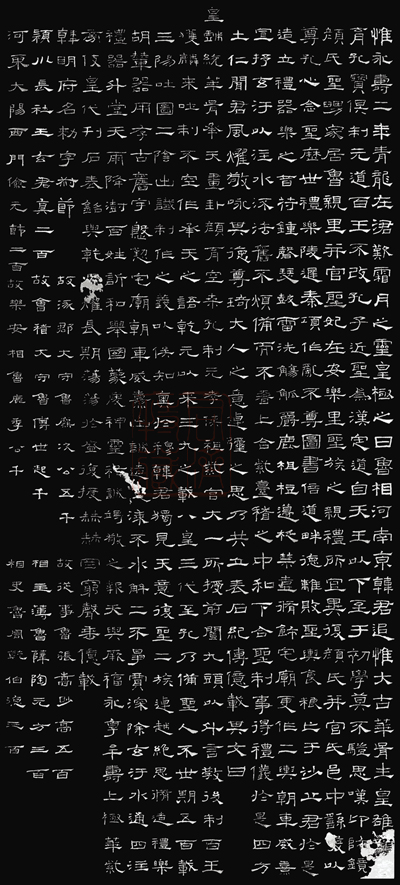 惟永壽二年青龍在涒歎霜月之靈皇極之日魯相河南京韓君追惟大古華胥生皇雄顏
育孔寶俱制元道百王不改孔子近聖為漢定道自天王以下至于初學莫不䮗思嘆卬師鏡
顏氏聖舅家居魯親里并官聖妃在安樂里聖族之親禮所宜異復顏氏并官氏邑中繇發以
尊孔心念聖歷世禮樂陵遲秦項作亂不尊圖書倍道畔德離敗聖輿食糧亡于沙丘君於是
造立禮器樂之音符鍾磬瑟鼓雷洗觴觚爵鹿柤梪籩柉禁壺脩飾宅廟更作二輿朝車威熹
宣抒玄汙以注水流法舊不煩備而不奢上合紫臺稽之中和下合聖制事得禮儀於是四方
土仁聞君風燿敬咏其德尊琦大人之意逴彌之思乃共立表石紀傳億載其文曰
皇戲統華胥承天畫卦顏育空桑孔制元孝俱祖紫宮大一所授前闓九頭以什言教後制百王
獲麟來吐制不空作承天之語乾元以來三九之載八皇三代至孔乃備聖人不世期五百載
三陽吐圖二陰出讖制作之義以俟知奧於穆韓君獨見天意復聖二族逴越絕思脩造禮樂
胡輦器用存古舊宇殷勤宅廟朝車威熹出誠造更漆不水解工不爭賈深除玄汙水通四注
禮器升堂天雨降澍百姓訢和舉國蒙慶神靈祐誠竭敬之報天與厥福永享牟壽上極華紫
旁伎皇代刊石表銘與乾運燿長期蕩蕩於盛復授赫赫罔窮聲垂億載
韓明府名勑字叔節 故涿郡大守魯麃次公五千 故從事魯張嵩眇高五百
穎川長社王玄君真二百 故會稽大守魯傅世起千 相主薄魯薛陶元方三百
河東大陽西門儉元節二百 故樂安相魯麃季公千 相史魯周乾伯德三百